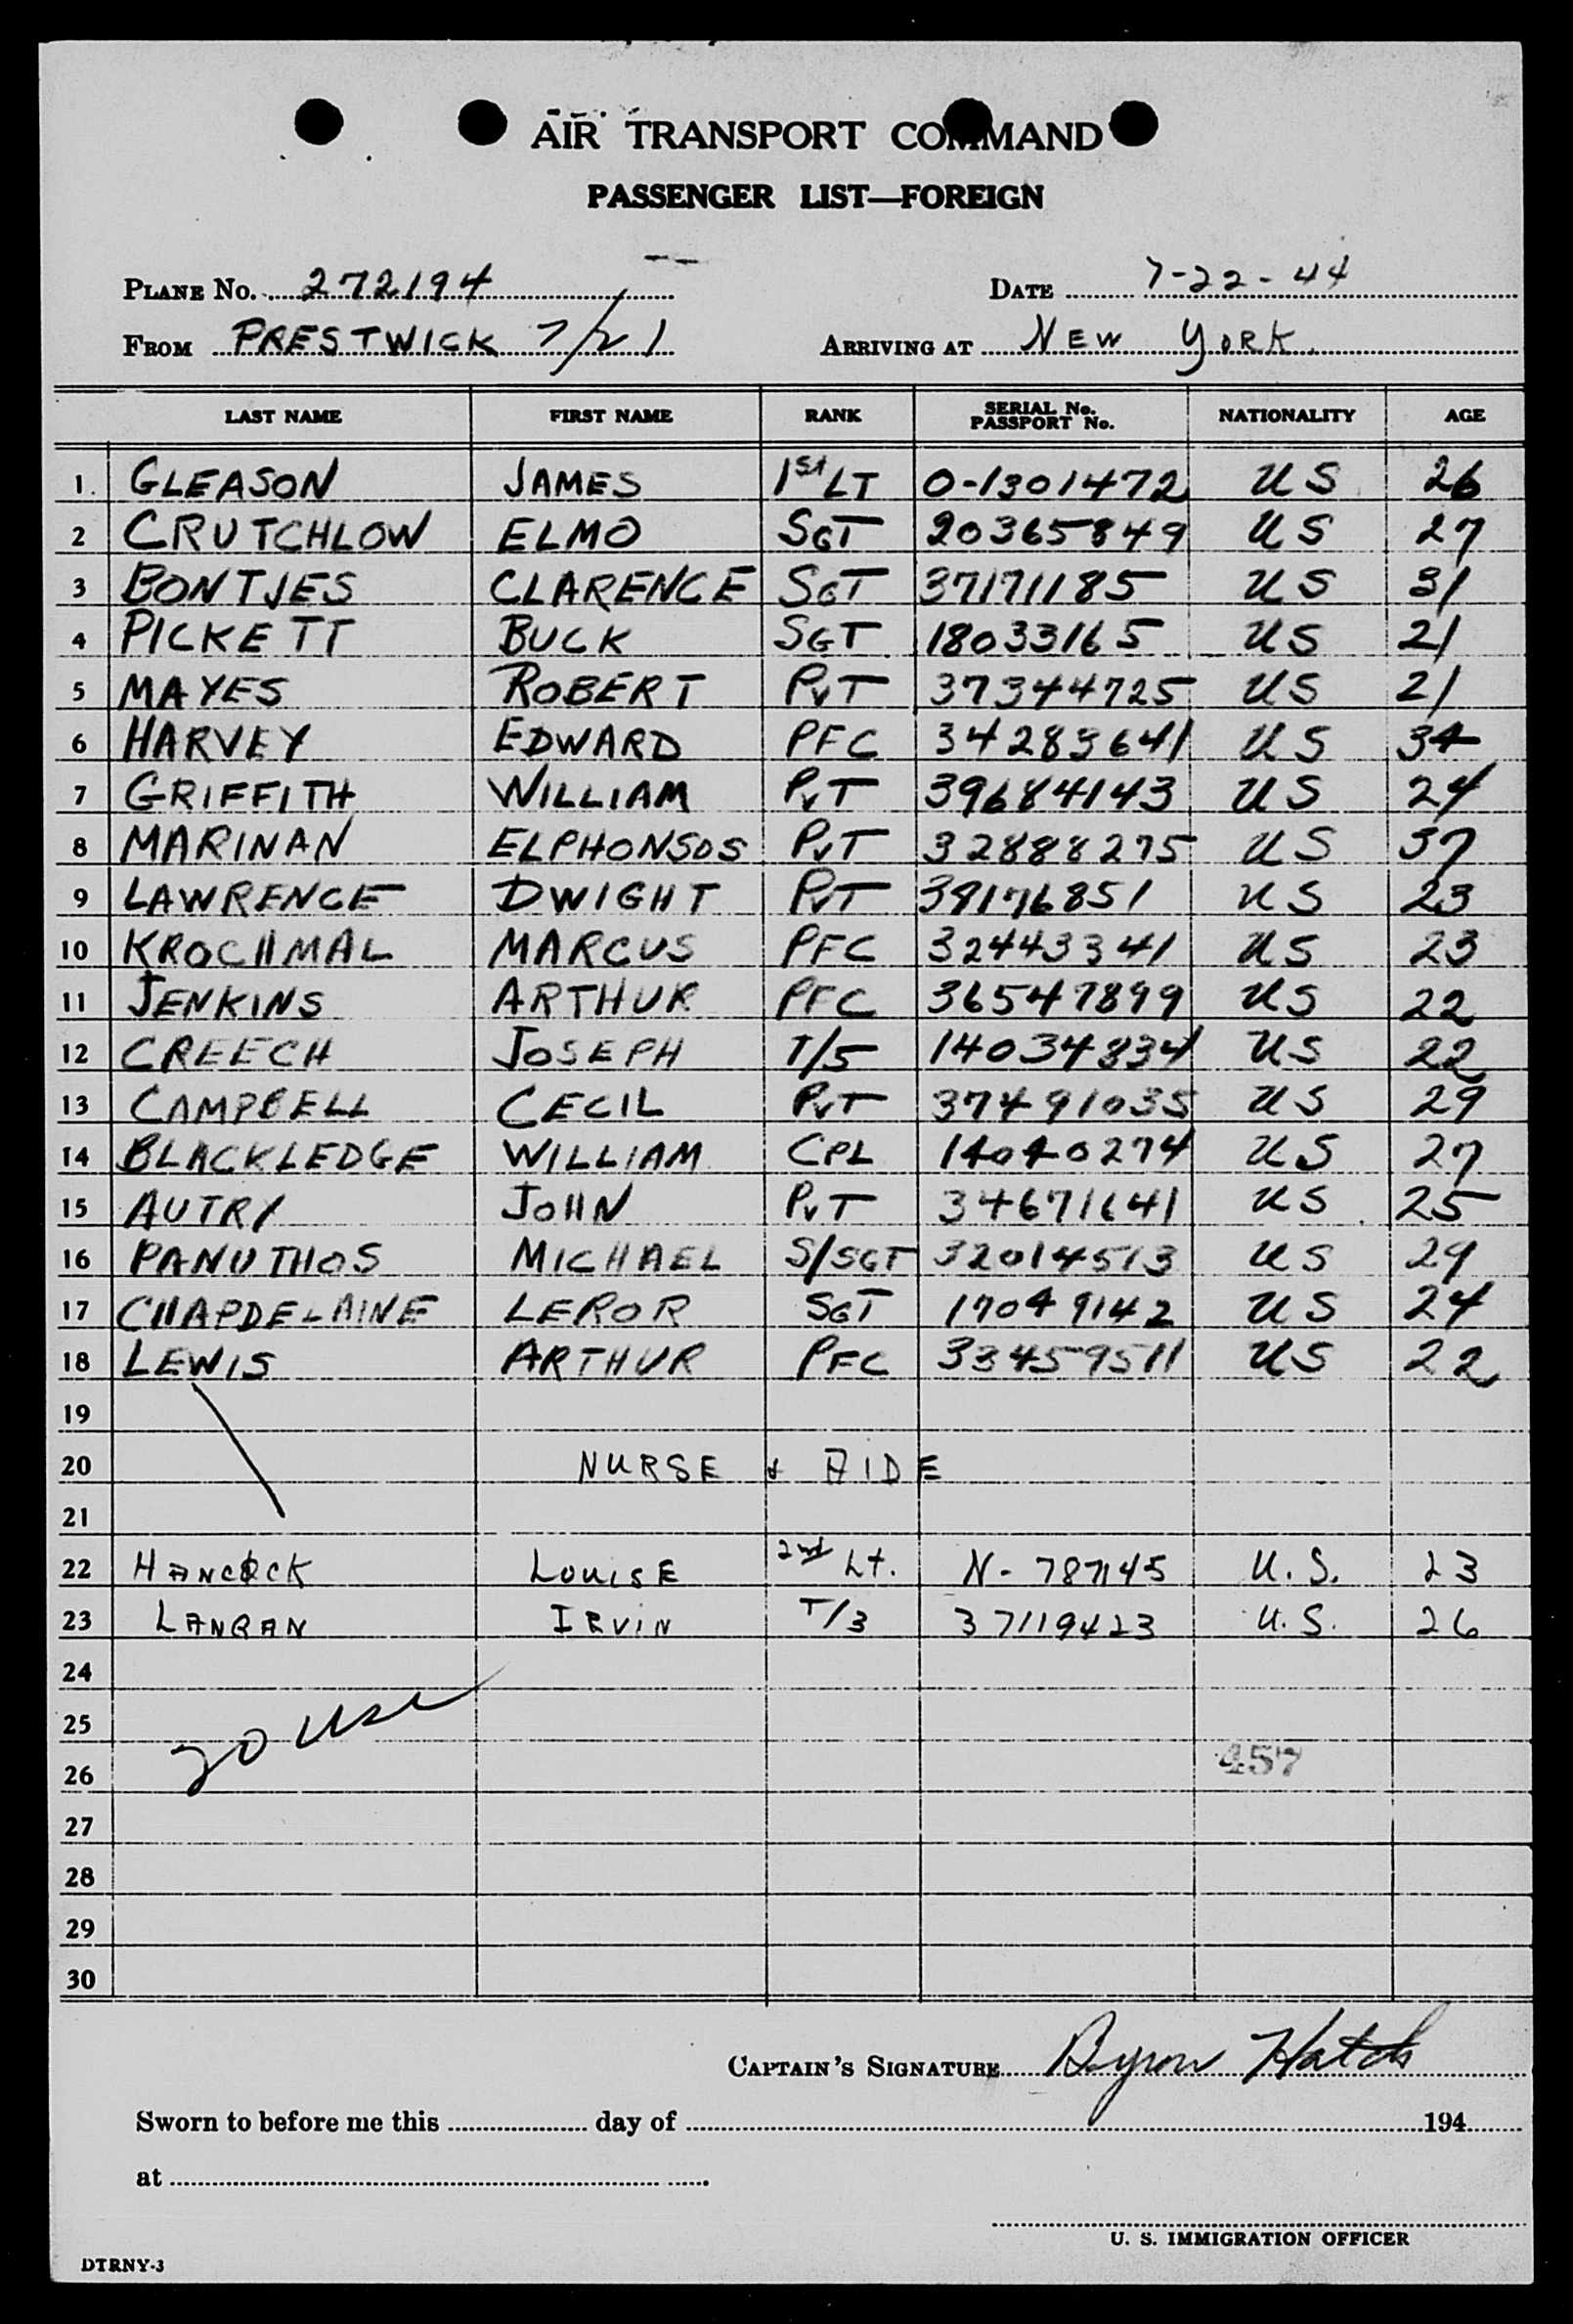 AIR TRANSPORT COMMAND
PASSENGER LIST—FOREIGN
PLANE No. 272194 DATE 7-22-44
FROM PRESTWICK 7/21 ARRIVING AT NEW YORK
LAST NAME FIRST NAME RANK SERIAL No. PASSPORT No. NATIONALITY AGE
1. GLEASON JAMES 1ST LT 0-1301472 US 26
2 CRUTCHLOW ELMO SGT 20365849 US 27
3 BONTJES CLARENCE SGT 37171185 US 31
4 PICKETT BUCK SGT 18033165 US 21
5 MAYES ROBERT PVT 37344725 US 21
6 HARVEY EDWARD PFC 34283641 US 34
7 GRIFFITH WILLIAM PVT 39684143 US 24
8 MARINAN ELPHONSOS PVT 32888275 US 37
9 LAWRENCE DWIGHT PVT 39176851 US 23
10 KROCHMAL MARCUS PFC 32443341 US 23
11 JENKINS ARTHUR PFC 36547899 US 22
12 CREECH JOSEPH T/5 14034834 US 22
13 CAMPBELL CECIL PVT 37491035 US 29
14 BLACKLEDGE WILLIAM CPL 14040274 US 27
15 AUTRY JOHN PVT 34671641 US 25
16 PANUTHOS MICHAEL S/SGT 32014513 US 29
17 CHAPDELAINE LEROR SGT 17049142 US 24
18 LEWIS ARTHUR PFC 33459511 US 22
19
20 NURSE & AIDE
21
22 HANCOCK LOUISE 2nd Lt. N-787145 U.S. 23
23 LANGAN IRVIN T/3 37119423 U.S. 26
24
25 20 USC
26 457
27
28
29
30
CAPTAIN'S SIGNATURE Byron Hatch
Sworn to before me this day of 194
at
U. S. IMMIGRATION OFFICER
DTRNY-3